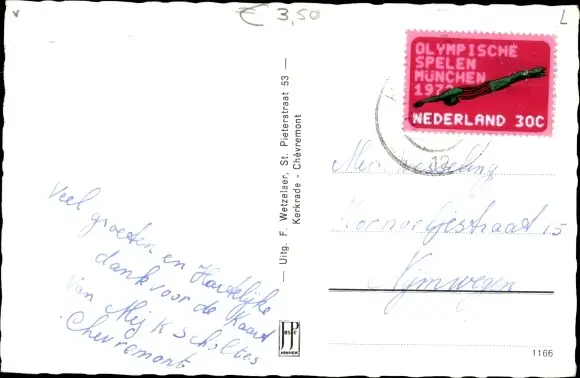 € 3,50
L
OLYMPISCHE
SPELEN
MÜNCHEN
1972
NEDERLAND 30C
12
Veel groeten en Hartelijke
dank voor de Kaart
Van Mej K Scholtes
Chevremont
— Uitg. F. Wetzelaer, St. Pieterstraat 53 —
Kerkrade - Chèvremont
straat 15
Nijmwegen
JP
ARNHEM
1166